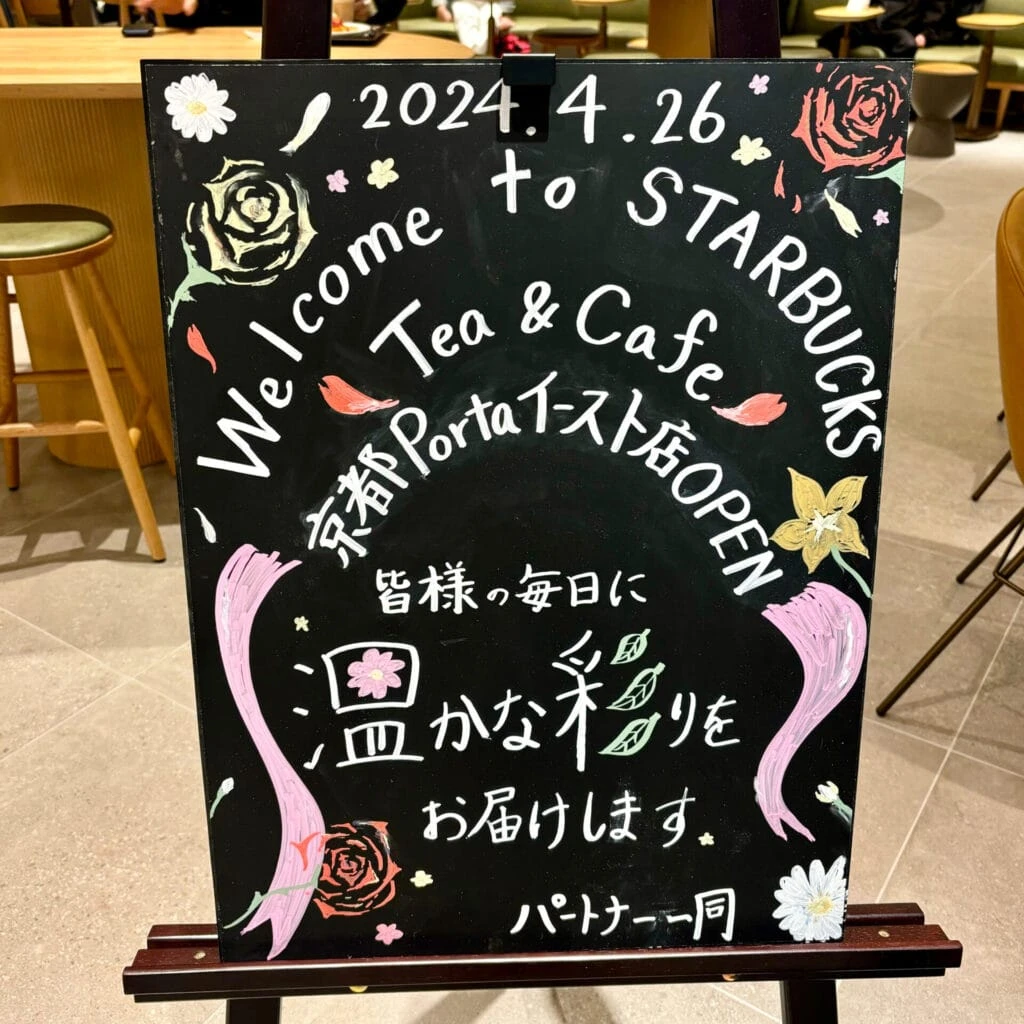 2024.4.26
Welcome to STARBUCKS
Tea & Cafe
京都Portaイースト店OPEN
皆様の毎日に
温かな彩りを
お届けします
パートナー一同